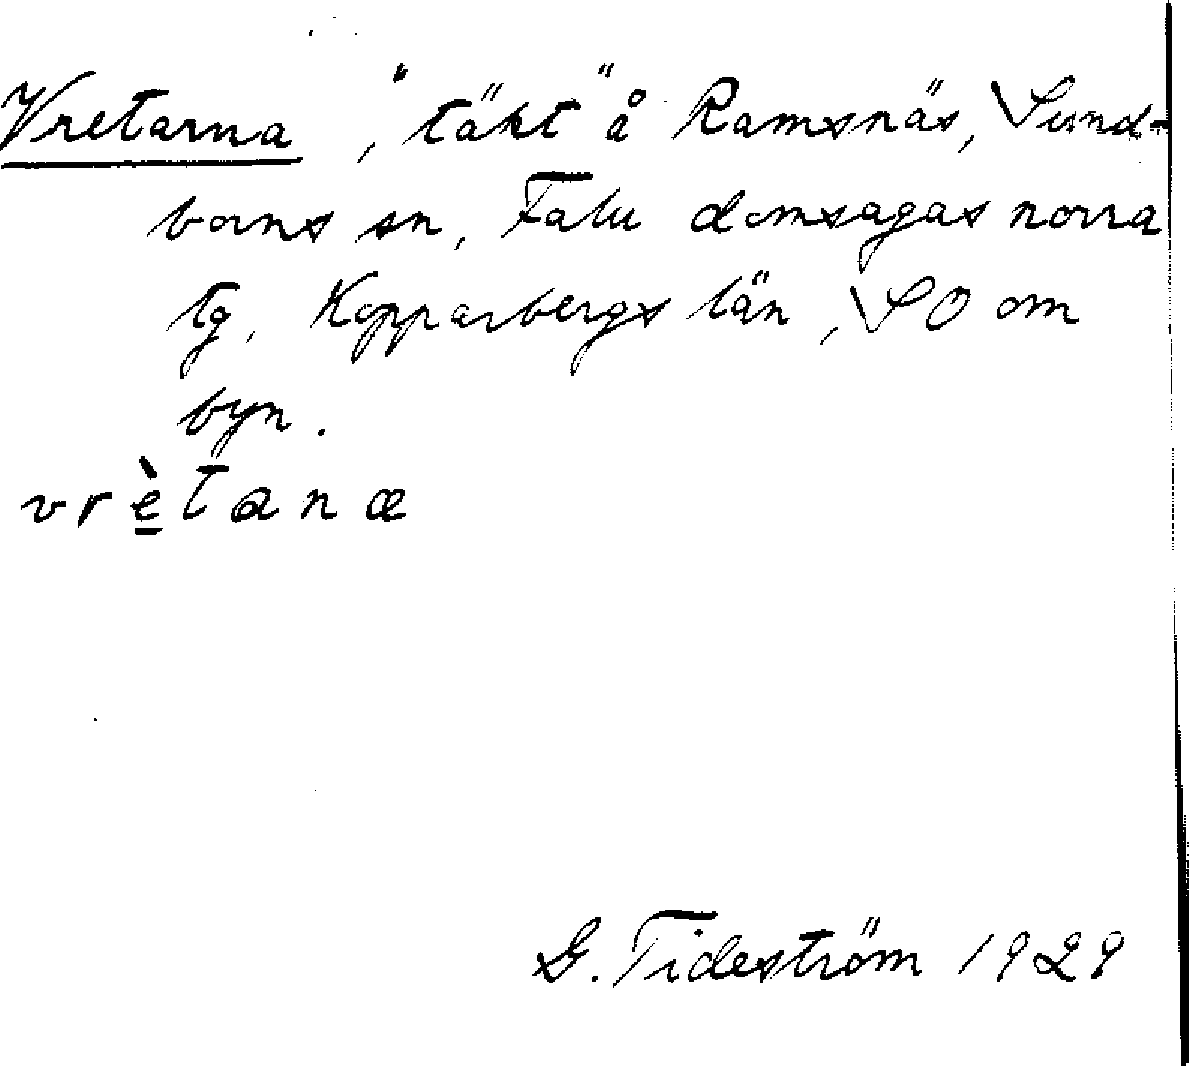 Vretarna, "täkt" å Ramsnäs, Sund-
borns sn, Falu domsagas norra
tg, Kopparbergs län, SO om
byn.
vrètana
G. Tideström 1929